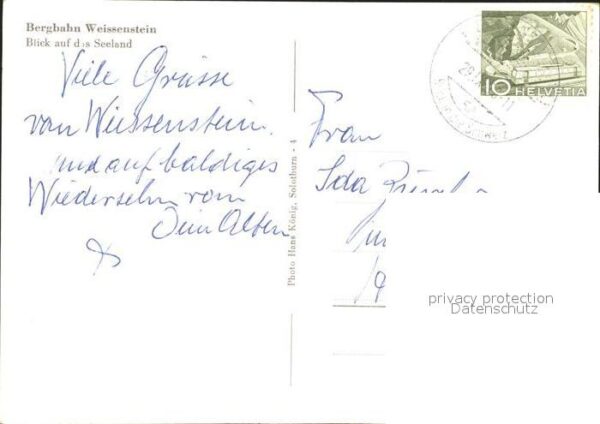 Bergbahn Weissenstein
Blick auf das Seeland
Viele Grüsse
von Weissenstein.
und auf baldiges
Wiedersehn vom
Dein Alten
Photo Hans König, Solothurn - 4
10 HELVETIA
Frau
Ida
privacy protection
Datenschutz